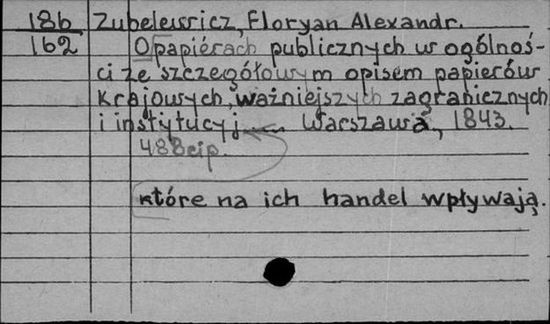 186 Zubelewicz, Floryan Alexandr.
162 O papiérach publicznych w ogólnoś-
ci ze szczegółowym opisem papierów
krajowych, ważniejszych zagranicznych
i instytucyj Warszawa, 1843.
488 cip.
które na ich handel wpływają.